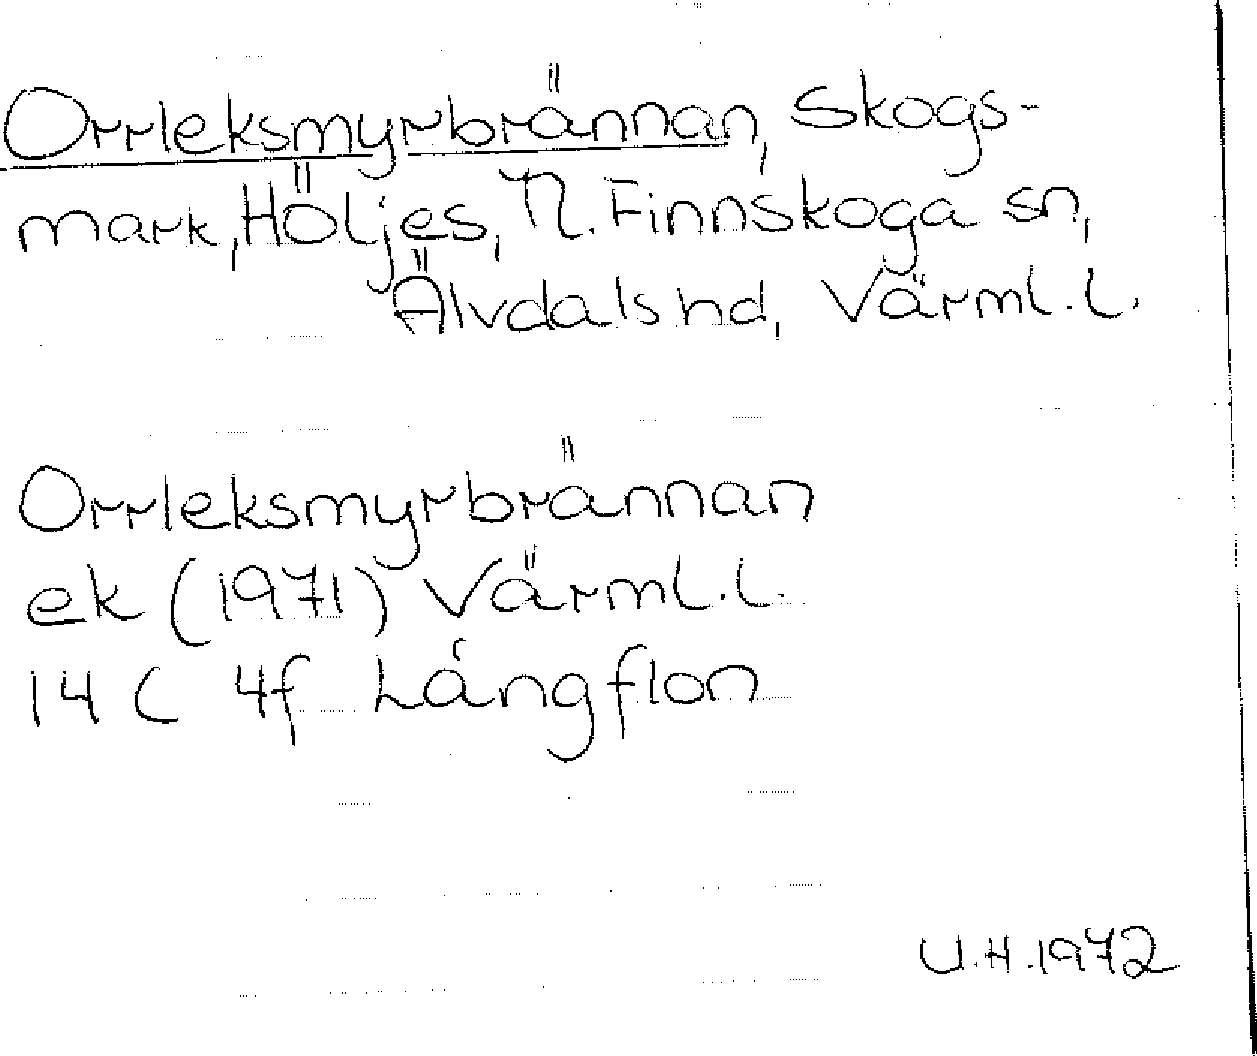 Orrleksmyrbrännan, Skogs-
mark, Höljes, N. Finnskoga sn,
Älvdals hd, Värml. l.
Orrleksmyrbrännan
ek (1971) Värml. l.
14 C 4f Långflon
U.H. 1972